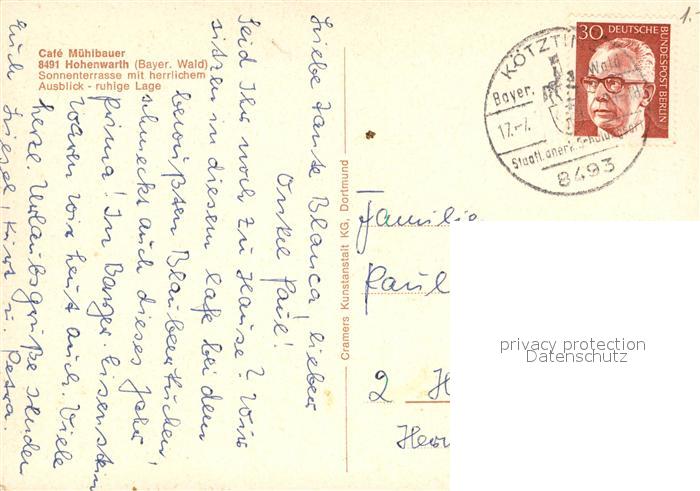 Café Mühlbauer
8491 Hohenwarth (Bayer. Wald)
Sonnenterrasse mit herrlichem
Ausblick - ruhige Lage
Liebe Tante Blanca! lieber
Onkel Paul!
Seid Ihr noch zu Hause? Wir
sitzen in diesem Cafe bei dem
bewußten Blaubeerkuchen!
schmeckt auch dieses Jahr
prima! In Bayer. Eisenstein
waren wir heut auch. Viele
herzl. Urlaubsgrüße senden
Euch Liesel, Kurt u. Petra.
Cramers Kunstanstalt KG, Dortmund
30 DEUTSCHE BUNDESPOST BERLIN
KÖTZTI
Bayer. Wald
17.-7.
Staatl. anerk.
8493
Familie
Paul
2 H
Herr
privacy protection
Datenschutz
1.-